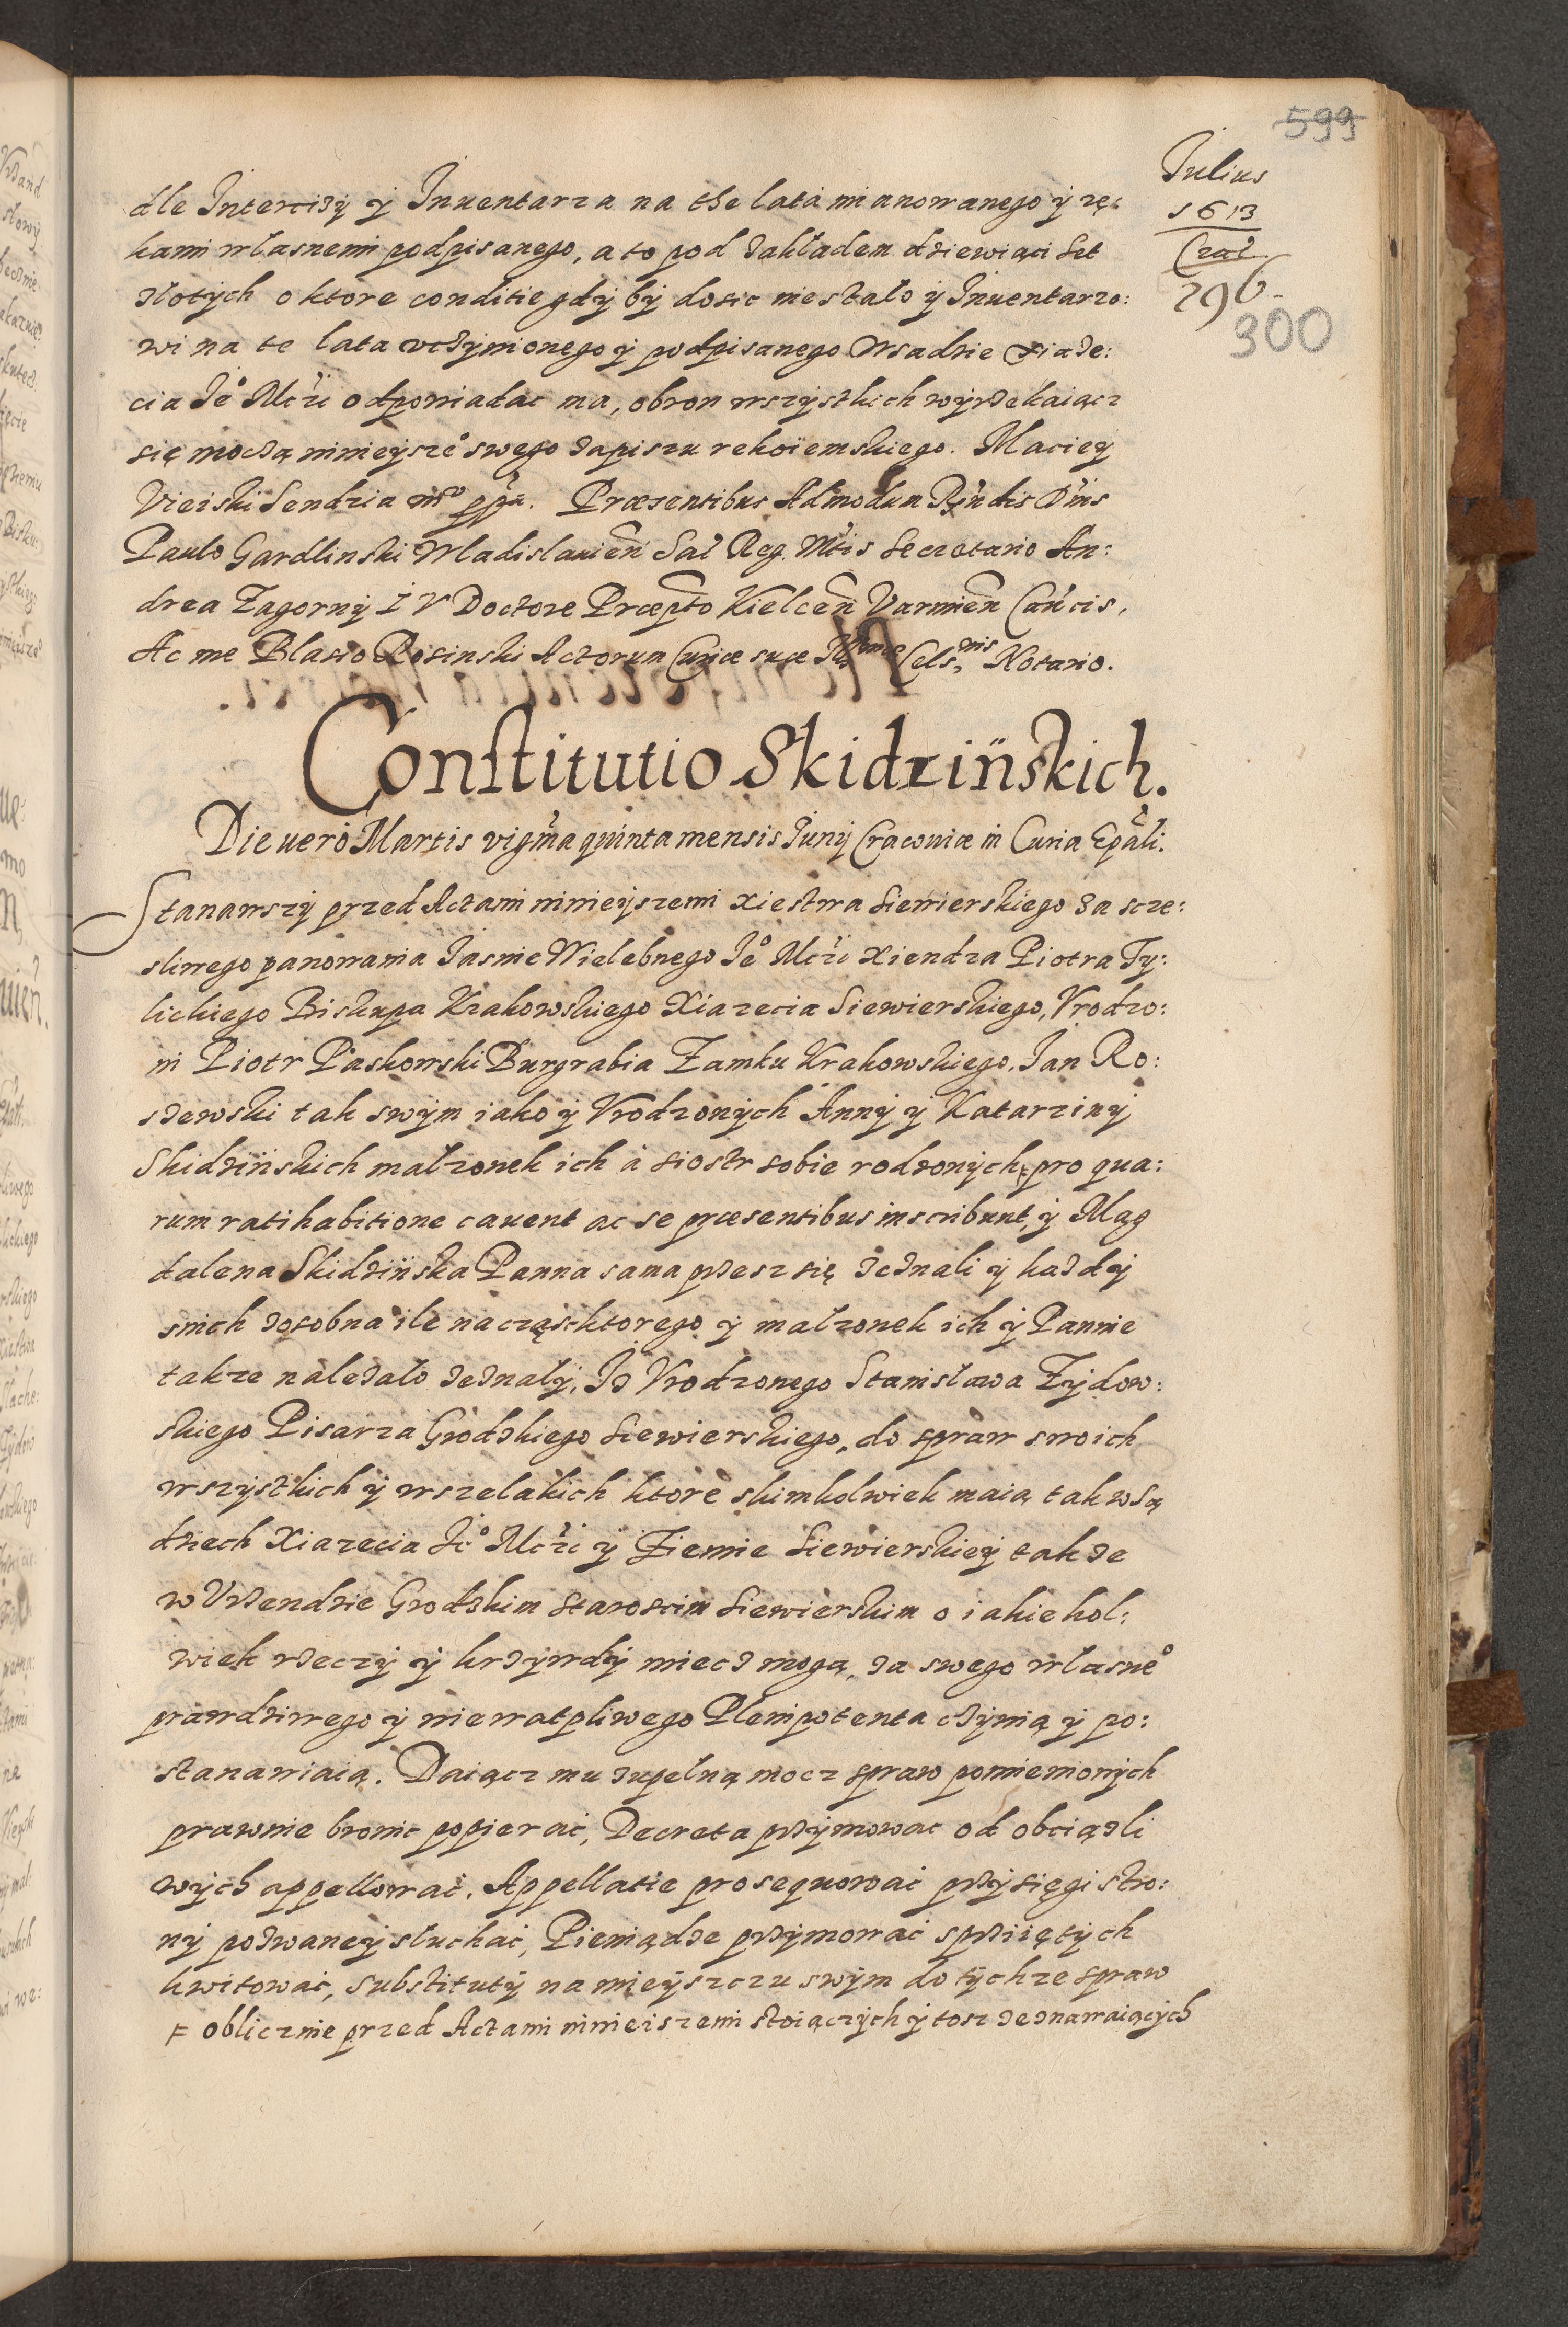 599
Iulius
1613
Crac
296
300
dle Intercizÿ ÿ Inuentarza na the lata mianowanego ÿ rę:
kami własnemi podpisanego, a to pod zakładem dziewiąci set
złotÿch o ktore conditie gdÿ bÿ dosic nie stało ÿ Inuentarzo:
wi na te lata vczÿnionego ÿ podpisanego Wsadzie Xiąże:
cia Je° Mczi odpowiadac ma, obron wszÿstkich wÿrzekaiącz
się moczą ninieÿsze° swego zapiszu rekoiemskiego. Macieÿ
Vieiski Sendzia mp ppa. Præsentibus Admodum Rndis Dnis
Paulo Gardlinski Wladislauien Sac Reg. Mtis Secretario An:
drea Zagornÿ I V Doctore Præpto Kielcen Varmien Cancis,
Ac me Blasio Rosinski Actorum Curiæ suæ Illmæ Cels,nis Notario.
Constitutio Skidzińskich.
Die uerò Martis vigma quinta mensis Iunij Cracouiæ in Curia Epali.
Stanawszÿ przed Actami ninieÿszemi Xiestwa Siewierskiego za scze:
sliwego panowania Iasnie Wielebnego Je° Mczi Xiendza Piotra Tÿ:
lickiego Biskupa Krakowskiego Xiazecia Siewierskiego, Vrodzo:
ni Piotr Paskowski Burgrabia Zamku Krakowskiego, Jan Ro:
szewski tak swÿm iako ÿ Vrodzonÿch Annÿ ÿ Katarzinÿ
Skidzińskich małzonek ich a siostr sobie rodzonÿch, F pro qua:
rum ratihabitione cauent ac se præsentibus inscribunt, ÿ Mag
dalena Skidzińska Panna sama przesz się zeznali ÿ kazdÿ
snich zosobna ile na cząsc ktorego ÿ małzonek ich ÿ Pannie
takze nalezało zeznałÿ, Iz Vrodzonego Stanisława Zÿdow:
skiego Pisarza Grodzkiego Siewierskiego, do spraw swoich
wszÿstkich ÿ wszelakich ktore skimkolwiek maią tak wSą
dziech Xiazecia Je° Mczi ÿ Ziemie Siewierskieÿ takze
w Vrzendzie Grodzkim Staroscim Siewierskim o iakiekol:
wiek rzeczÿ ÿ krzÿwdÿ miecz mogą, za swego własne°
prawdziwego ÿ niewatpliwego Plenipotenta czÿnią ÿ po:
stanawiaią. Daiącz mu zupełną mocz spraw pomienionÿch
prawnie bronic popierać, Decreta przÿmowac od obciązli
wÿch appellować, Appellatie prosequować przÿsięgi stro:
nÿ pozwaneÿ słuchać, Pieniądze przÿmować sprziiętÿch
kwitować, substitutÿ na mieÿszczu swÿm do tÿchze spraw
F oblicznie przed Actami ninieiszemi stoiączÿch ÿ tosz zeznawaiącÿch